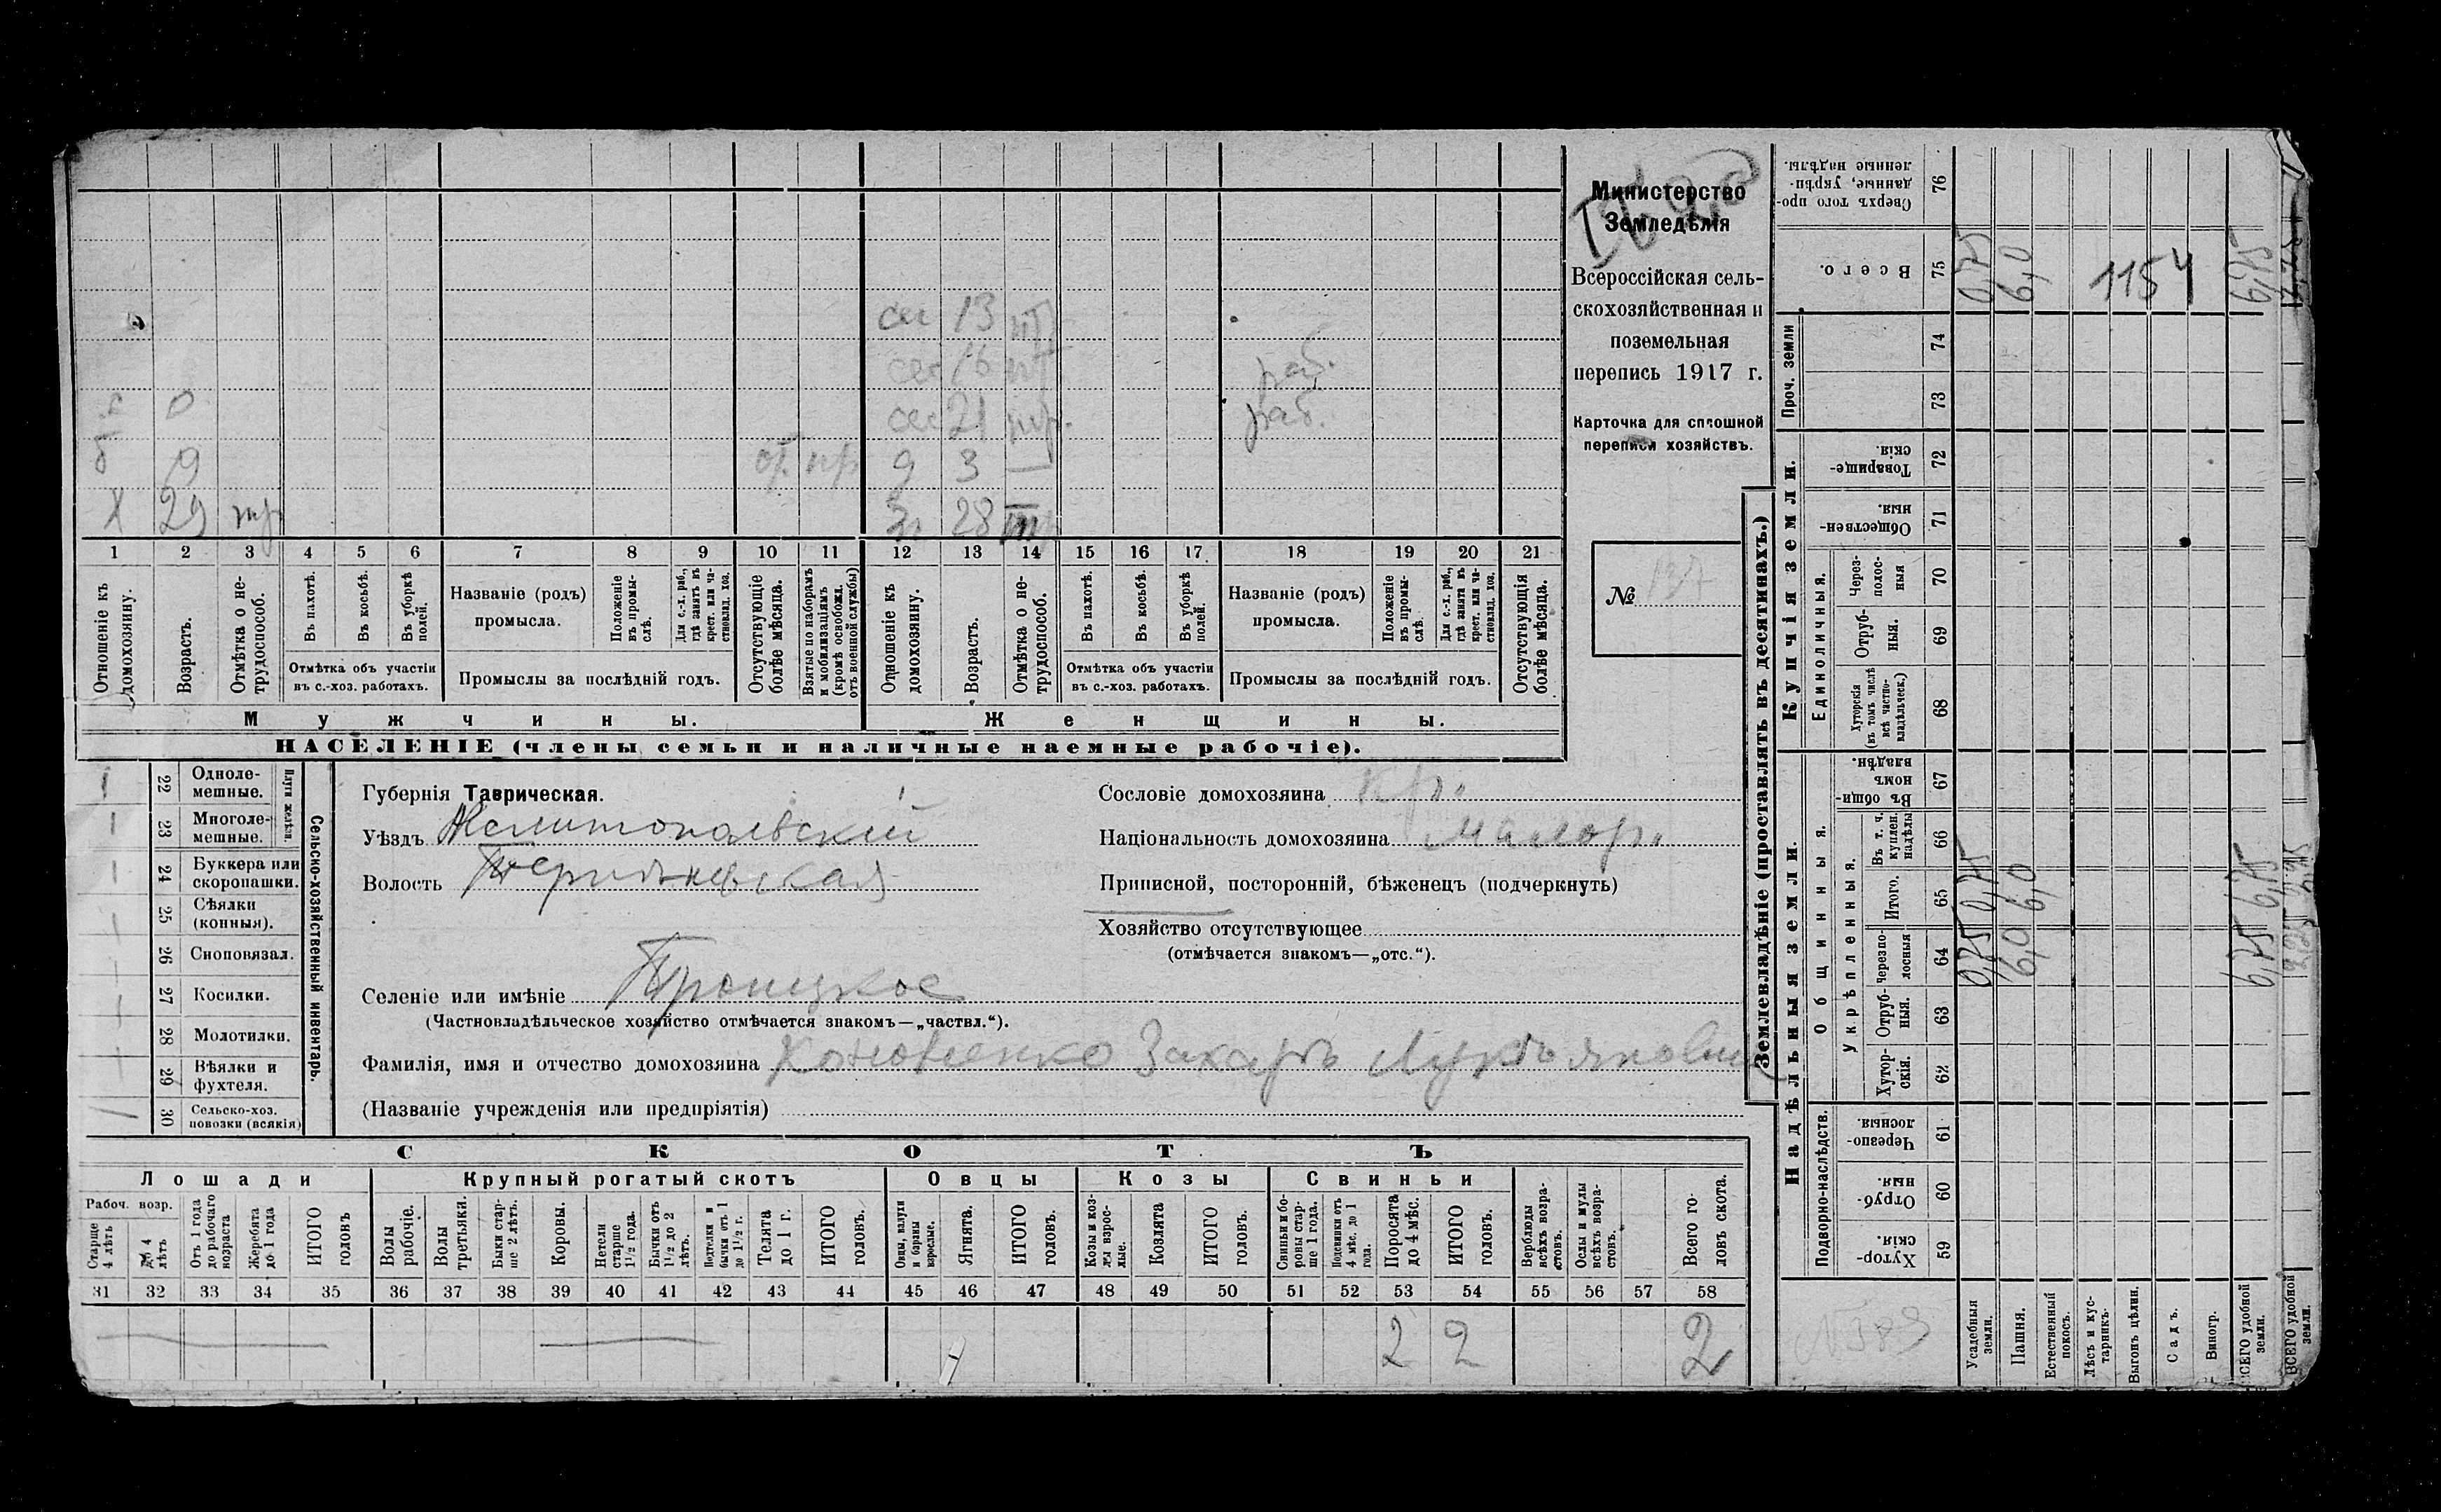 Министерство
Земледѣлія
Всероссійская сель-
скохозяйственная и
поземельная
перепись 1917 г.
Карточка для сплошной
переписи хозяйствъ.
№ 137
сес 13
сес 16 раб.
сес 21 нгр. раб.
б 9 от. нгр д 3 —
Х 29 нгр 28
1 2 3 4 5 6 7 8 9 10 11 12 13 14 15 16 17 18 19 20 21
Отношеніе къ домохозяину.
Возрастъ.
Отмѣтка о не-трудоспособ.
Въ пахотѣ.
Въ косьбѣ.
Въ уборкѣ полей.
Отмѣтка объ участіи въ с.-хоз. работахъ.
Названіе (родъ) промысла.
Положеніе въ промы-слѣ.
Для с.-х. раб., гдѣ занятъ въ крест. или ча-стновлад. хоз.
Промыслы за послѣдній годъ.
Отсутствующіе болѣе мѣсяца.
Взятые по наборамъ и мобилизаціямъ (кромѣ освобожд. отъ военной службы)
Отношеніе къ домохозяину.
Возрастъ.
Отмѣтка о не-трудоспособ.
Въ пахотѣ.
Въ косьбѣ.
Въ уборкѣ полей.
Отмѣтка объ участіи въ с.-хоз. работахъ.
Названіе (родъ) промысла.
Положеніе въ промы-слѣ.
Для с.-х. раб., гдѣ занята въ крест. или ча-стновлад. хоз.
Промыслы за послѣдній годъ.
Отсутствующія болѣе мѣсяца.
Мужчины. Женщины.
НАСЕЛЕНІЕ (члены семьи и наличные наемные рабочіе).
Сельско-хозяйственный инвентарь.
Плуги желѣзн.
22 Одноле-мешные.
23 Многоле-мешные.
24 Буккера или скоропашки.
25 Сѣялки (конныя).
26 Сноповязал.
27 Косилки.
28 Молотилки.
29 Вѣялки и фухтеля.
30 Сельско-хоз. повозки (всякія)
Губернія Таврическая.
Уѣздъ Мелитопольскій
Волость
Селеніе или имѣніе Троицкое
(Частновладѣльческое хозяйство отмѣчается знакомъ—„частвл.“).
Фамилія, имя и отчество домохозяина Коноваленко Захаръ Лукьяновичъ
(Названіе учрежденія или предпріятія)
Сословіе домохозяина кр.
Національность домохозяина малор.
Приписной, посторонній, бѣженецъ (подчеркнуть)
Хозяйство отсутствующее
(отмѣчается знакомъ—„отс.“).
СКОТЪ
Лошади Крупный рогатый скотъ Овцы Козы Свиньи
Рабоч. возр.
Старше 4 лѣтъ
до 4 лѣтъ
Отъ 1 года до рабочаго возраста
Жеребята до 1 года
ИТОГО головъ
Волы рабочіе.
Волы третьяки.
Быки стар-ше 2 лѣтъ.
Коровы.
Нетели старше 1½ года.
Бычки отъ 1½ до 2 лѣтъ.
Подтелки и бычки отъ 1 до 1½ г.
Телята до 1 г.
ИТОГО головъ.
Овцы, валухи и бараны взрослые.
Ягнята.
ИТОГО головъ.
Козы и коз-лы взрос-лые.
Козлята
ИТОГО головъ.
Свиньи и бо-ровы стар-ше 1 года.
Подсвинки отъ 4 мѣс. до 1 года.
Поросята до 4 мѣс.
ИТОГО головъ.
Верблюды всѣхъ возра-стовъ.
Ослы и мулы всѣхъ возра-стовъ.
Всего го-ловъ скота.
31 32 33 34 35 36 37 38 39 40 41 42 43 44 45 46 47 48 49 50 51 52 53 54 55 56 57 58
2 2 2
Землевладѣніе (проставлять въ десятинахъ.)
Надѣльныя земли. Купчія земли. Проч. земли
Подворно-наслѣдств.
Общинныя.
Укрѣпленныя.
Единоличныя.
59 Хутор-скія.
60 Отруб-ныя.
61 Черезпо-лосныя.
62 Хутор-скія.
63 Отруб-ныя.
64 Черезпо-лосныя
65 Итого.
66 Въ т. ч. куплен. надѣлы
67 Въ общин-номъ владѣн.
68 Хуторскія (въ томъ числѣ всѣ частно-владѣльческ.)
69 Отруб-ныя.
70 Через-полос-ныя
71 Обществен-ныя.
72 Товарище-скія
73
74
75 Всего.
76 Сверхъ того про-данные, укрѣп-ленные надѣлы.
Усадебныя земли. 0,75 0,75 0,75
Пашня. 6,0 6,0 6,0
Естественный покосъ.
Лѣсъ и кус-тарникъ.
Выгонъ цѣлин.
Садъ.
Виногр.
ВСЕГО удобной земли. 6,75 6,75 6,75
ВСЕГО удобной земли.
1154